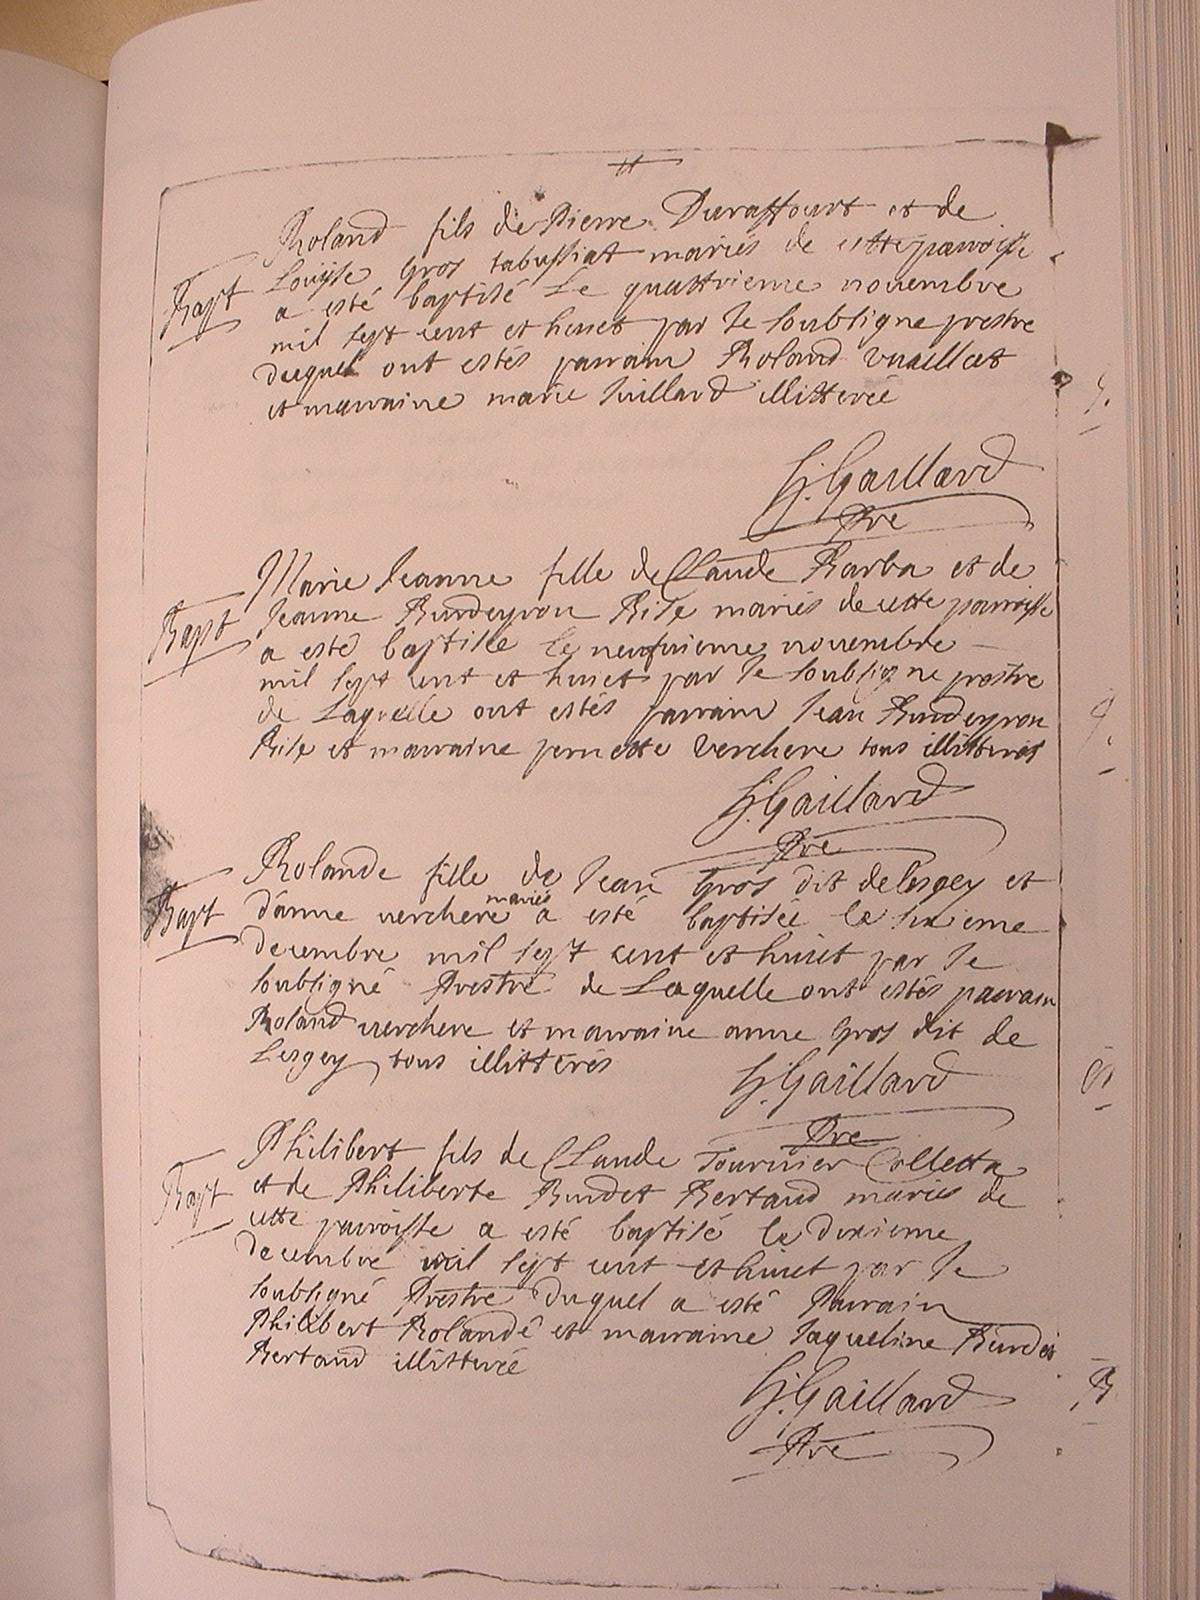 Roland fils de Pierre Duraffourt et de
Bapt
Louise Gros tabussiat mariés de cette paroisse
a esté baptisé Le quattrieme novembre
mil sept cent et huict par Je soubsigne prestre
duquel ont estés parrain Roland vuaillet
et marraine marie Juillard illitterée
G. Gaillard
Pre
Marie Jeanne fille de Claude Barba et de
Bapt
Jeanne Burdeyron Rise mariés de cette paroisse
a esté baptisée le neufvieme novembre
mil sept cent et huict par Je soubsigne prestre
de Laquelle ont estés parrain Jean Burdeyron
Rise et marraine pernette verchere tous illitterés
G. Gaillard
Pre
Rolande fille de Jean Gros dit de Lesgey et
Bapt
d'anne verchere mariés a esté baptisée le sixieme
decembre mil sept cent et huict par Je
soubsigné Prestre de Laquelle ont estés parrain
Roland verchere et marraine anne Gros dit de
Lesgey tous illitterés
G. Gaillard
Pre
Philibert fils de Claude Tournier Colletta
Bapt
et de Philiberte Burdet Bertand mariés de
cette paroisse a esté baptisé le dixieme
decembre mil sept cent et huict par Je
soubsigné Prestre Duquel a esté Parrain
Philibert Rolande et marraine Jaqueline
Bertand illitterée
G. Gaillard
Pre